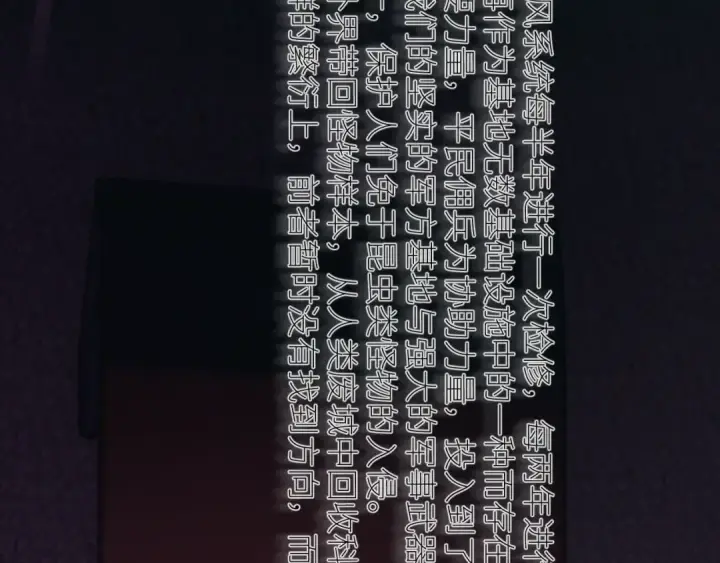 风系统每半年进行一次检修，每两年进行
每作为基地无数基础设施中的一种而存在
要力量，平民佣兵为协助力量，投入到了
我们的坚实的军方基地与强大的军事武器
，保护人们免于昆虫类怪物的入侵。
外界带回怪物样本，从人类废城中回收科
样的繁衍上，前者暂时没有找到方向，而